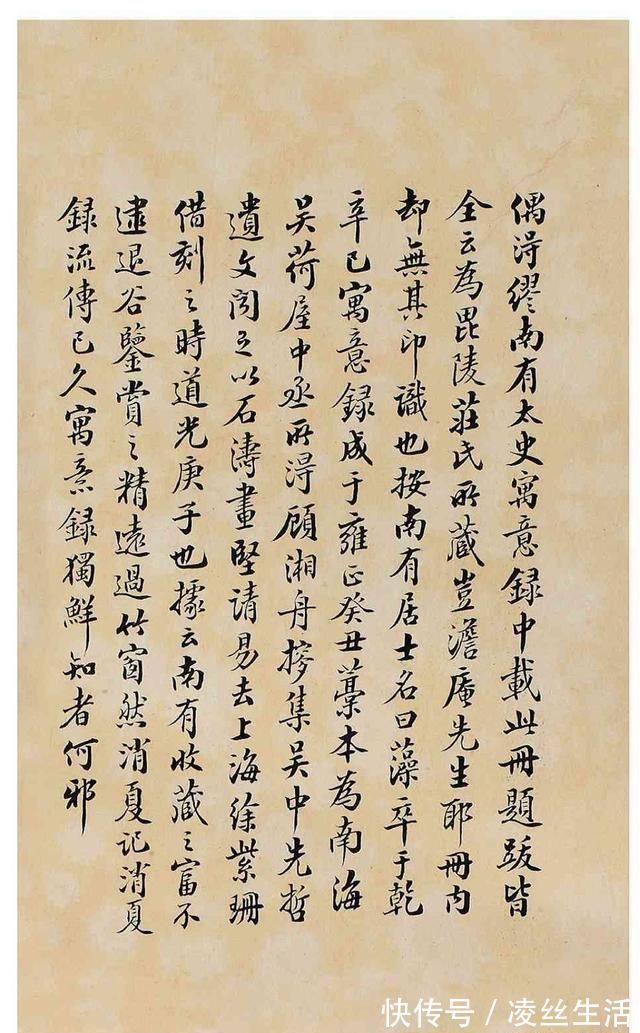 偶淂繆南有太史寓意録中載此冊題跋皆
全云為毘陵莊氏所藏豈澹庵先生耶冊内
却無其印識也按南有居士名曰藻卒于乾
辛巳寓意録成于雍正癸丑藁本為南海
吴荷屋中丞所淂顧湘舟搜集吴中先哲
遺文聞之以石濤畫堅請易去上海徐紫珊
借刻之時道光庚子也據云南有收藏之富不
逮退谷鑒賞之精遠過竹窗然消夏記消夏
録流傳已久寓意録獨鮮知者何邪
快传号/凌丝生活